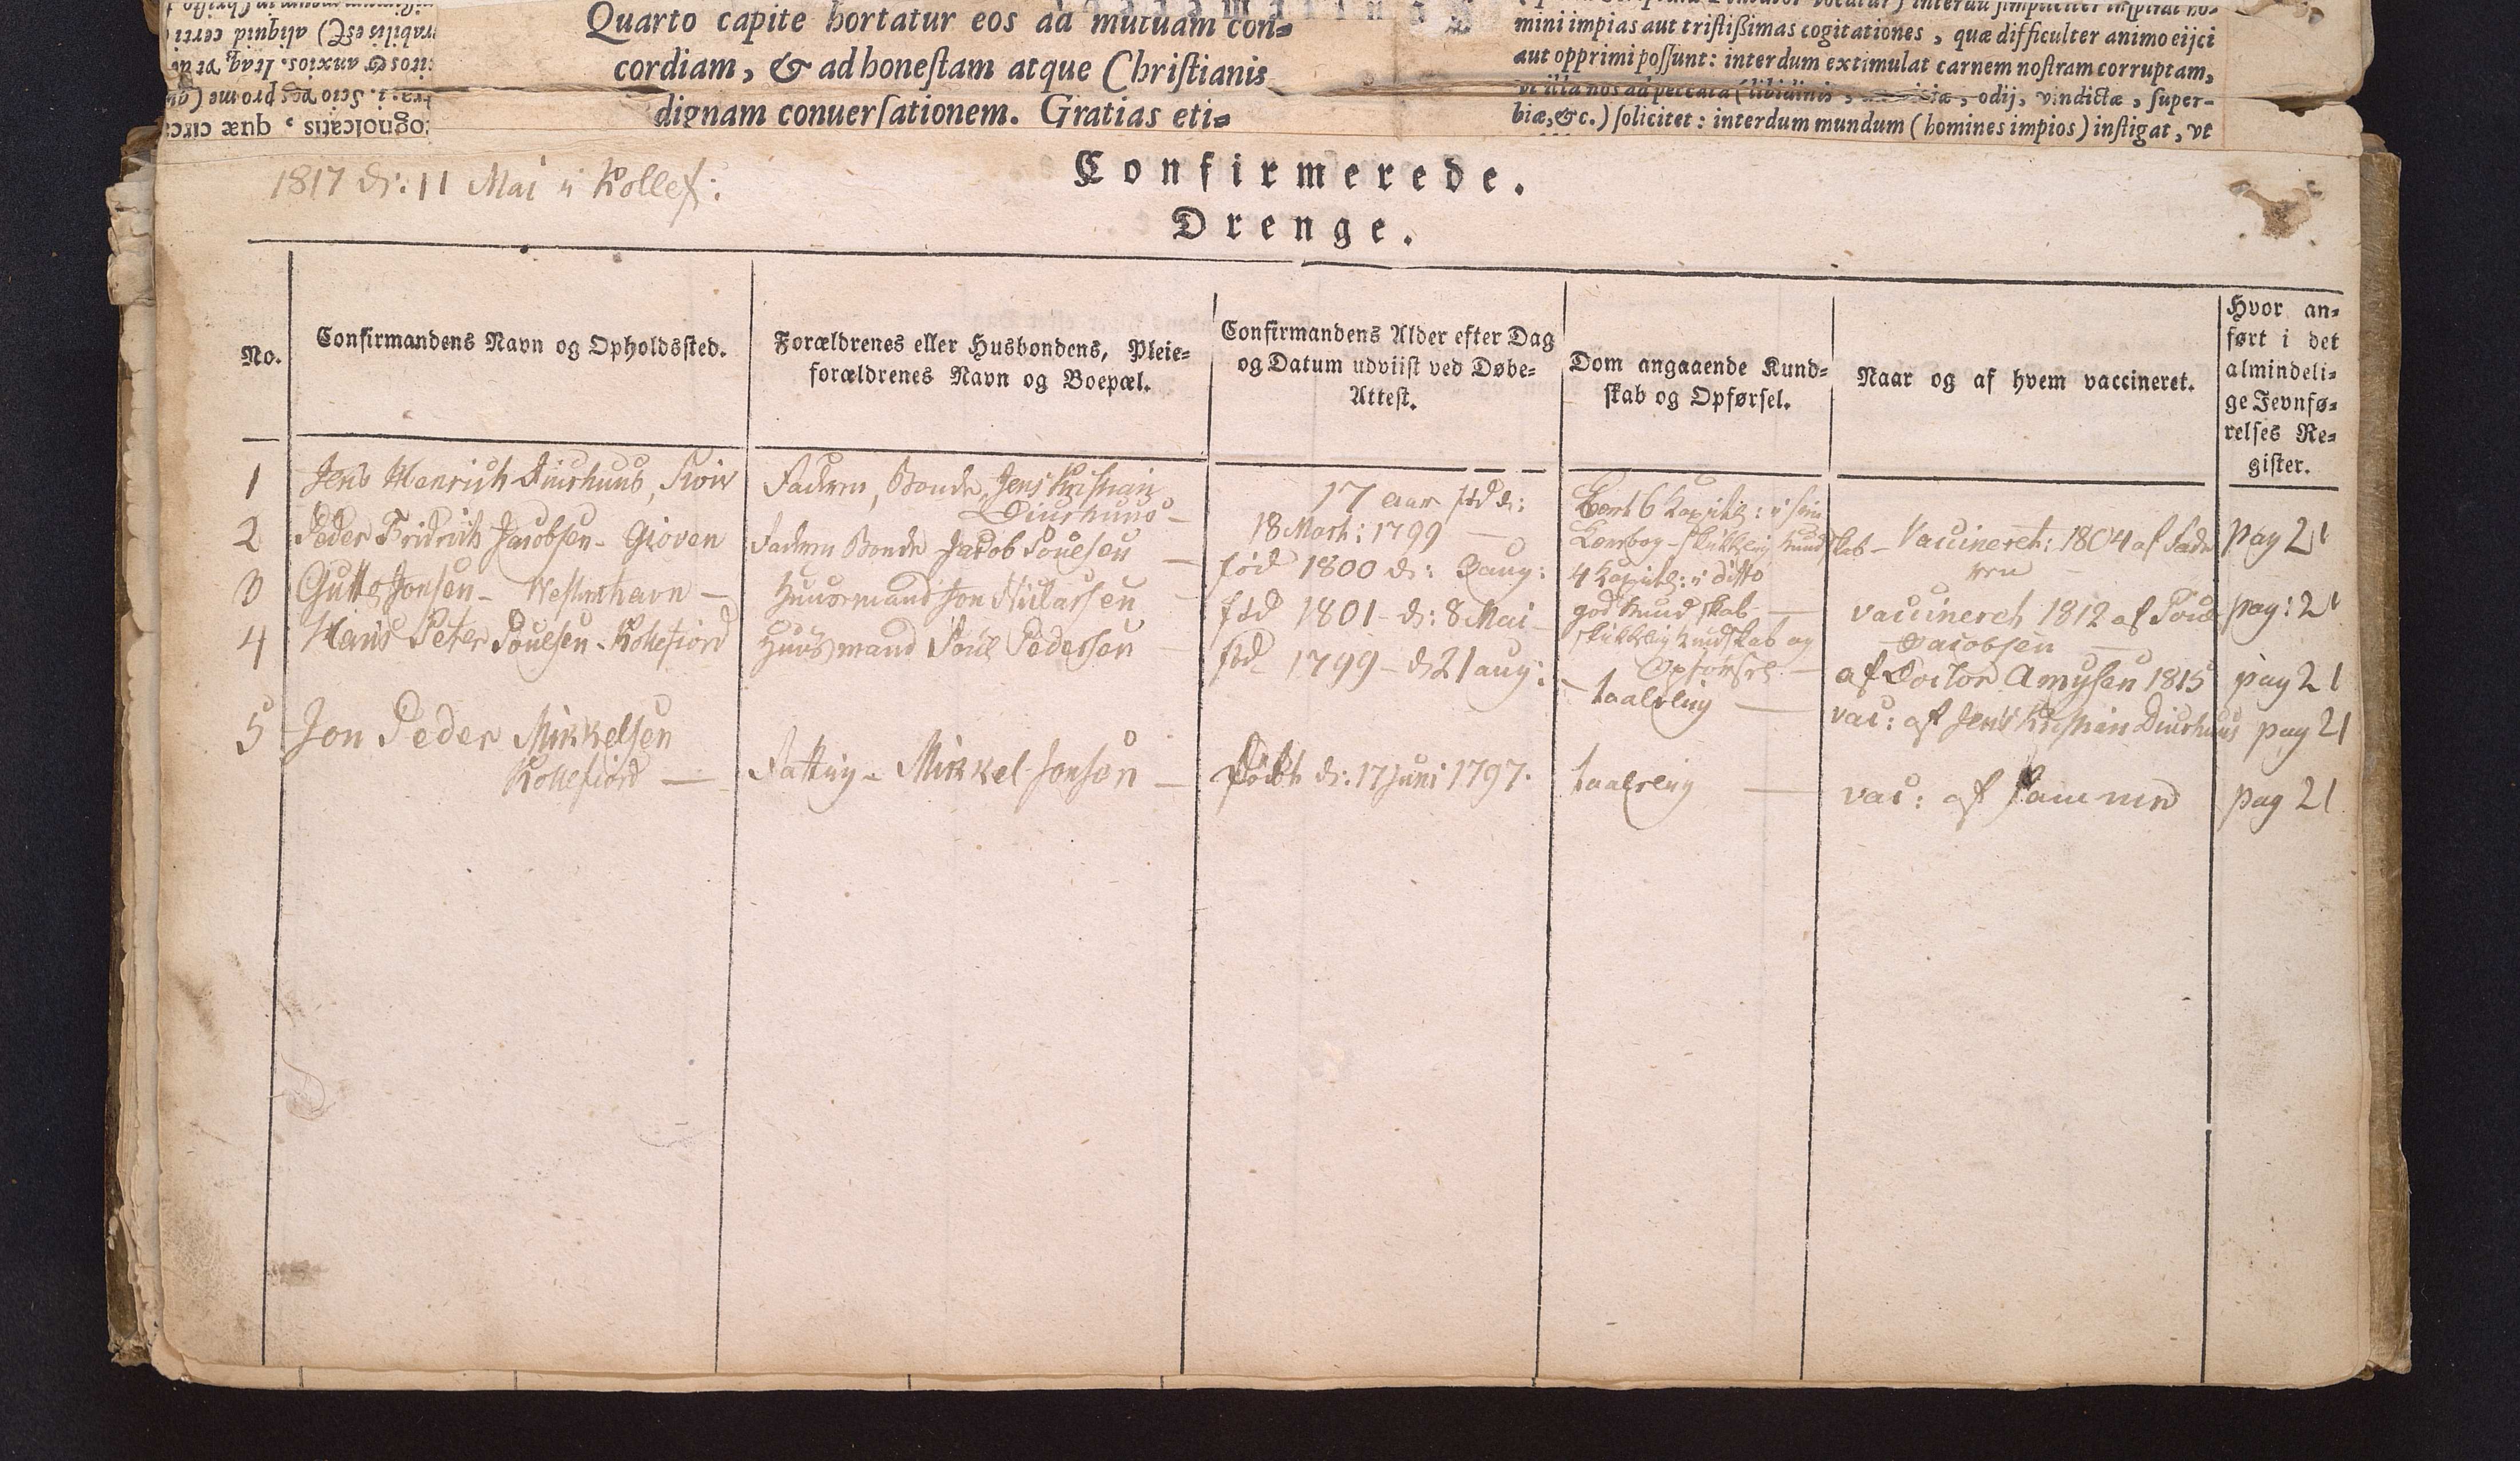 Quarto capite hortatur eos ad mutuam con=
cordiam, & ad honeſtam atque Chriſtianis
dignam conuerſationem. Gratias eti=
mini impias aut triſtiſsimas cogitationes, quæ difficulter animo eijci
aut opprimi poſſunt: interdum extimulat carnem noſtram corruptam,
odij, vindictæ, ſuper-
biæ, &c.) ſolicitet: interdum mundum (homines impios) inſtigat, vt
1817 d: 11 Mai i Kollef:
Confirmerede.
Drenge.
No.
Confirmandens Navn og Opholdsſted.
Forældrenes eller Husbondens, Pleie=
forældrenes Navn og Boepæl.
Confirmandens Alder efter Dag
og Datum udviiſt ved Døbe=
Atteſt.
Dom angaaende Kund=
ſkab og Opførſel.
Naar og af hvem vaccineret.
Hvor an=
ført i det
almindeli=
ge Jevnfø=
relſes Re=
giſter.
1 Jens Henrich Diurhuus,
Faderen, Bonde, Jens Kristian
Diurhuus -
17 aar fød d:
18 Mart: 1799
Lært 6 Kapitl: i sin
Lærebog - skikkelig kundskab -
Vaccineret: 1804 af Fade
ren
pag 21
2 Peder Fridrich Jacobsen - Giøven
Faderen Bonde Jakob Poulsen -
fød 1800 d: 3 aug:
4 Kapitl: i ditto
god kundskab -
vaccineret 1812 af Poul
Jacobsen
pag: 21
3 Gutte Jonsen - Vestmhavn -
Huusmand Jon
fød 1801 - d: 8 Mai -
skikkelig kundskab og
Opførsel -
af Doctor Amysen 1815
pag 21
4 Hans Peter Poulsen - Kollefiord
Huusmand Poul Pedersen -
fød 1799 - d 21 aug:
- taalelig -
vac: af Jens Kristian Diurhuus
pag 21
5 Jon Peder Mikkelsen
Kollefiord -
Fattig - Mikkel Jonsen -
Født d: 17 Juni 1797.
taalelig -
vac: af samme
pag 21